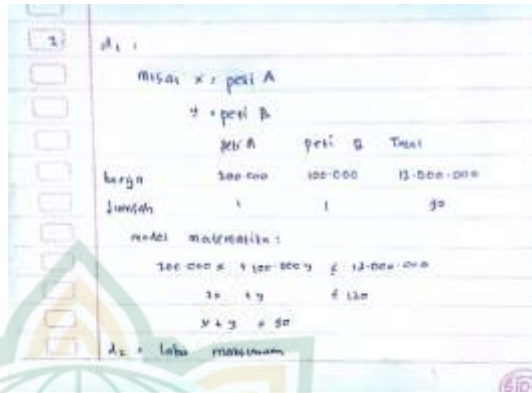 2.
d1 :
misal x = peti A
y = peti B
peti A peti B Total
harga 200.000 100.000 12.000.000
Jumlah 1 1 90
model matematika :
200.000 x + 100.000 y ≤ 12.000.000
2x + y ≤ 120
x + y ≤ 90
d2 = laba maksimum